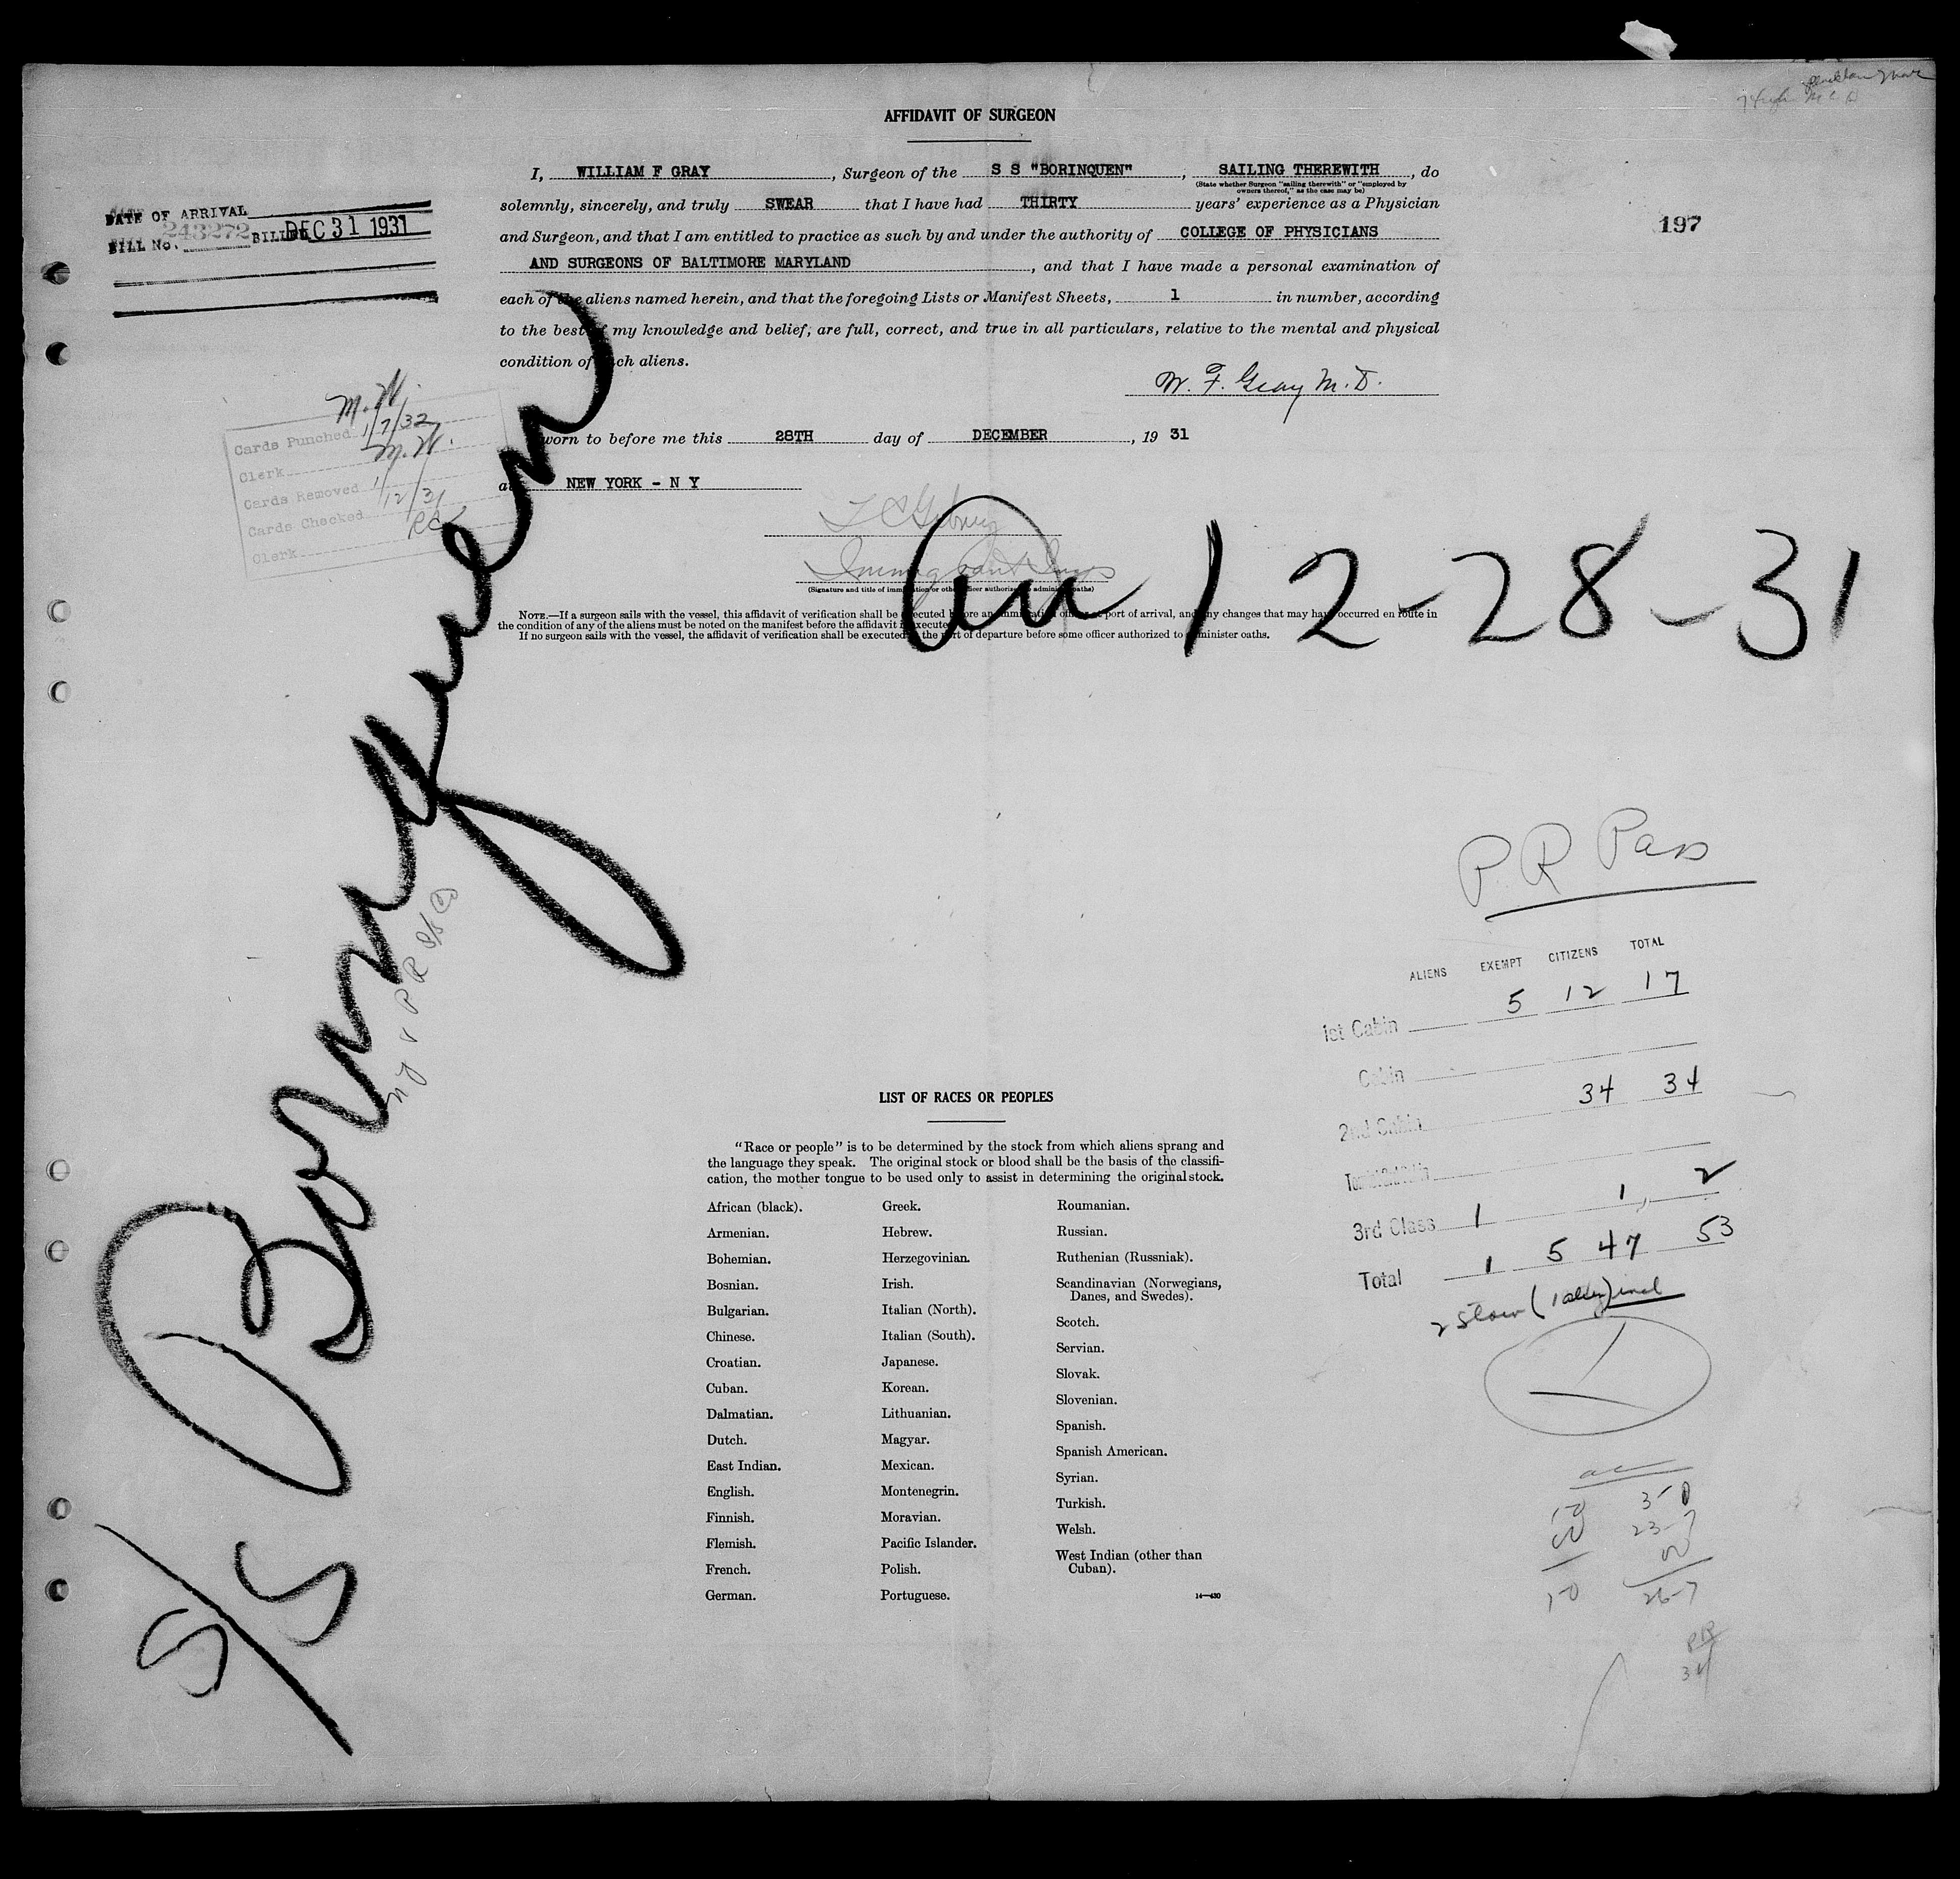 AFFIDAVIT OF SURGEON
I, WILLIAM F GRAY, Surgeon of the S S "BORINQUEN", SAILING THEREWITH, do
(State whether Surgeon "sailing therewith" or "employed by
owners thereof," as the case may be)
solemnly, sincerely, and truly SWEAR that I have had THIRTY years' experience as a Physician
and Surgeon, and that I am entitled to practice as such by and under the authority of COLLEGE OF PHYSICIANS
AND SURGEONS OF BALTIMORE MARYLAND, and that I have made a personal examination of
each of the aliens named herein, and that the foregoing Lists or Manifest Sheets, 1 in number, according
to the best of my knowledge and belief, are full, correct, and true in all particulars, relative to the mental and physical
condition of such aliens.
W. F. Gray M.D.
Sworn to before me this 28TH day of DECEMBER, 19 31
at NEW YORK - N Y
Immigrant Insp
(Signature and title of immigration or other officer authorized to administer oaths)
NOTE.—If a surgeon sails with the vessel, this affidavit of verification shall be executed before an immigration officer at port of arrival, and any changes that may have occurred en route in
the condition of any of the aliens must be noted on the manifest before the affidavit is executed.
If no surgeon sails with the vessel, the affidavit of verification shall be executed at the port of departure before some officer authorized to administer oaths.
DATE OF ARRIVAL
BILL No. 243272 BILLED DEC 31 1931
197
M.W.
Cards Punched 1/7/32
Clerk M.W.
Cards Removed
Cards Checked 1/12/31
Clerk
S/S Borinquen
Arr 12-28-31
NY & P R S/S Co
P R Pass
ALIENS EXEMPT CITIZENS TOTAL
1st Cabin 5 12 17
Cabin
2nd Cabin 34 34
3rd Class 1 1 2
Total 1 5 47 53
2 Stow (1 alien) incl
LIST OF RACES OR PEOPLES
"Race or people" is to be determined by the stock from which aliens sprang and
the language they speak. The original stock or blood shall be the basis of the classifi-
cation, the mother tongue to be used only to assist in determining the original stock.
African (black).
Armenian.
Bohemian.
Bosnian.
Bulgarian.
Chinese.
Croatian.
Cuban.
Dalmatian.
Dutch.
East Indian.
English.
Finnish.
Flemish.
French.
German.
Greek.
Hebrew.
Herzegovinian.
Irish.
Italian (North).
Italian (South).
Japanese.
Korean.
Lithuanian.
Magyar.
Mexican.
Montenegrin.
Moravian.
Pacific Islander.
Polish.
Portuguese.
Roumanian.
Russian.
Ruthenian (Russniak).
Scandinavian (Norwegians,
Danes, and Swedes).
Scotch.
Servian.
Slovak.
Slovenian.
Spanish.
Spanish American.
Syrian.
Turkish.
Welsh.
West Indian (other than
Cuban).
14—430
3-0
23-7
26-7
PR
34